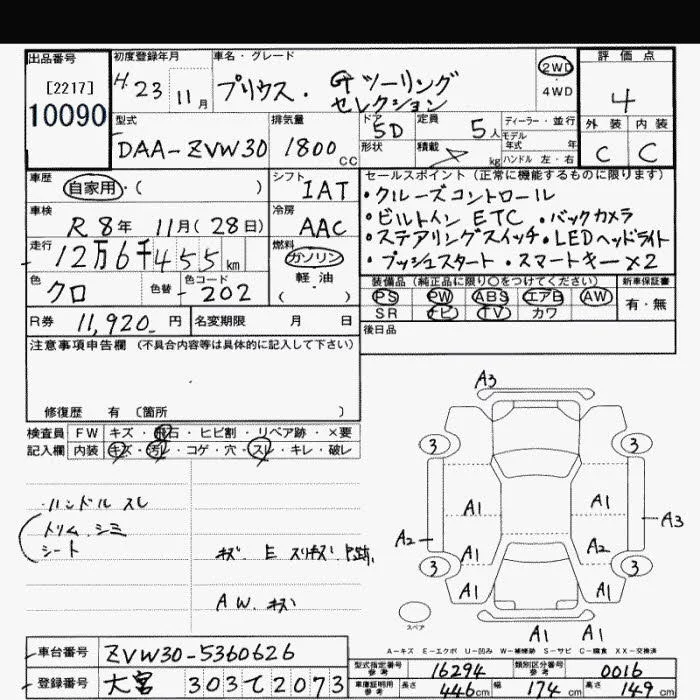 出品番号
[2217]
10090
初度登録年月
H.23 11月
車名・グレード
プリウス・Gツーリング
セレクション
2WD
・
4WD
評価点
4
外装 内装
C C
型式
DAA-ZVW30
排気量
1800 CC
ドア
5D
形状
定員
5人
積載
kg
ディーラー・並行
モデル
年式 年
ハンドル 左・右
車歴
自家用・( )
シフト
IAT
車検
R8年 11月(28日)
冷房
AAC
走行
12万6千455km
燃料
ガソリン
軽・油
( )
色
クロ
色替
色コード
202
R券 11,920- 円
名変期限 月 日
セールスポイント(正常に機能するものに限ります)
・クルーズコントロール
・ビルトインETC ・バックカメラ
・ステアリングスイッチ・LEDヘッドライト
・プッシュスタート・スマートキー×2
装備品(純正品に限り○をつけてください)
新車保証書
PS PW ABS エアB AW
SR ナビ TV カワ
有・無
後日品
注意事項申告欄(不具合内容等は具体的に記入して下さい)
修復歴 有〔箇所 〕
検査員 FW キズ・飛石・ヒビ割・リペア跡・×要
記入欄 内装 キズ・汚レ・コゲ・穴・スレ・キレ・破レ
・ハンドルスレ
トリム.シミ
シート
キズ E スリキズ P跡.
AW.キズ
A3
3 3
A1 A1
A2 A1 A2 A3
3 3
A1 A1
スペア
A1 A1
A-キズ E-エクボ U-凹み W-補修跡 S-サビ C-腐食 XX-交換済
車台番号 ZVW30-5360626
登録番号 大宮 303て2073
型式指定番号
参考
16294
類別区分番号
参考
0016
車庫証明用
参考
長さ 446cm 幅 174cm 高さ 149cm